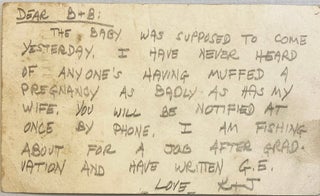 DEAR B+B:
THE BABY WAS SUPPOSED TO COME
YESTERDAY. I HAVE NEVER HEARD
OF ANYONE'S HAVING MUFFED A
PREGNANCY AS BADLY AS HAS MY
WIFE. YOU WILL BE NOTIFIED AT
ONCE BY PHONE. I AM FISHING
ABOUT FOR A JOB AFTER GRAD-
UATION AND HAVE WRITTEN G.E.
LOVE K+J